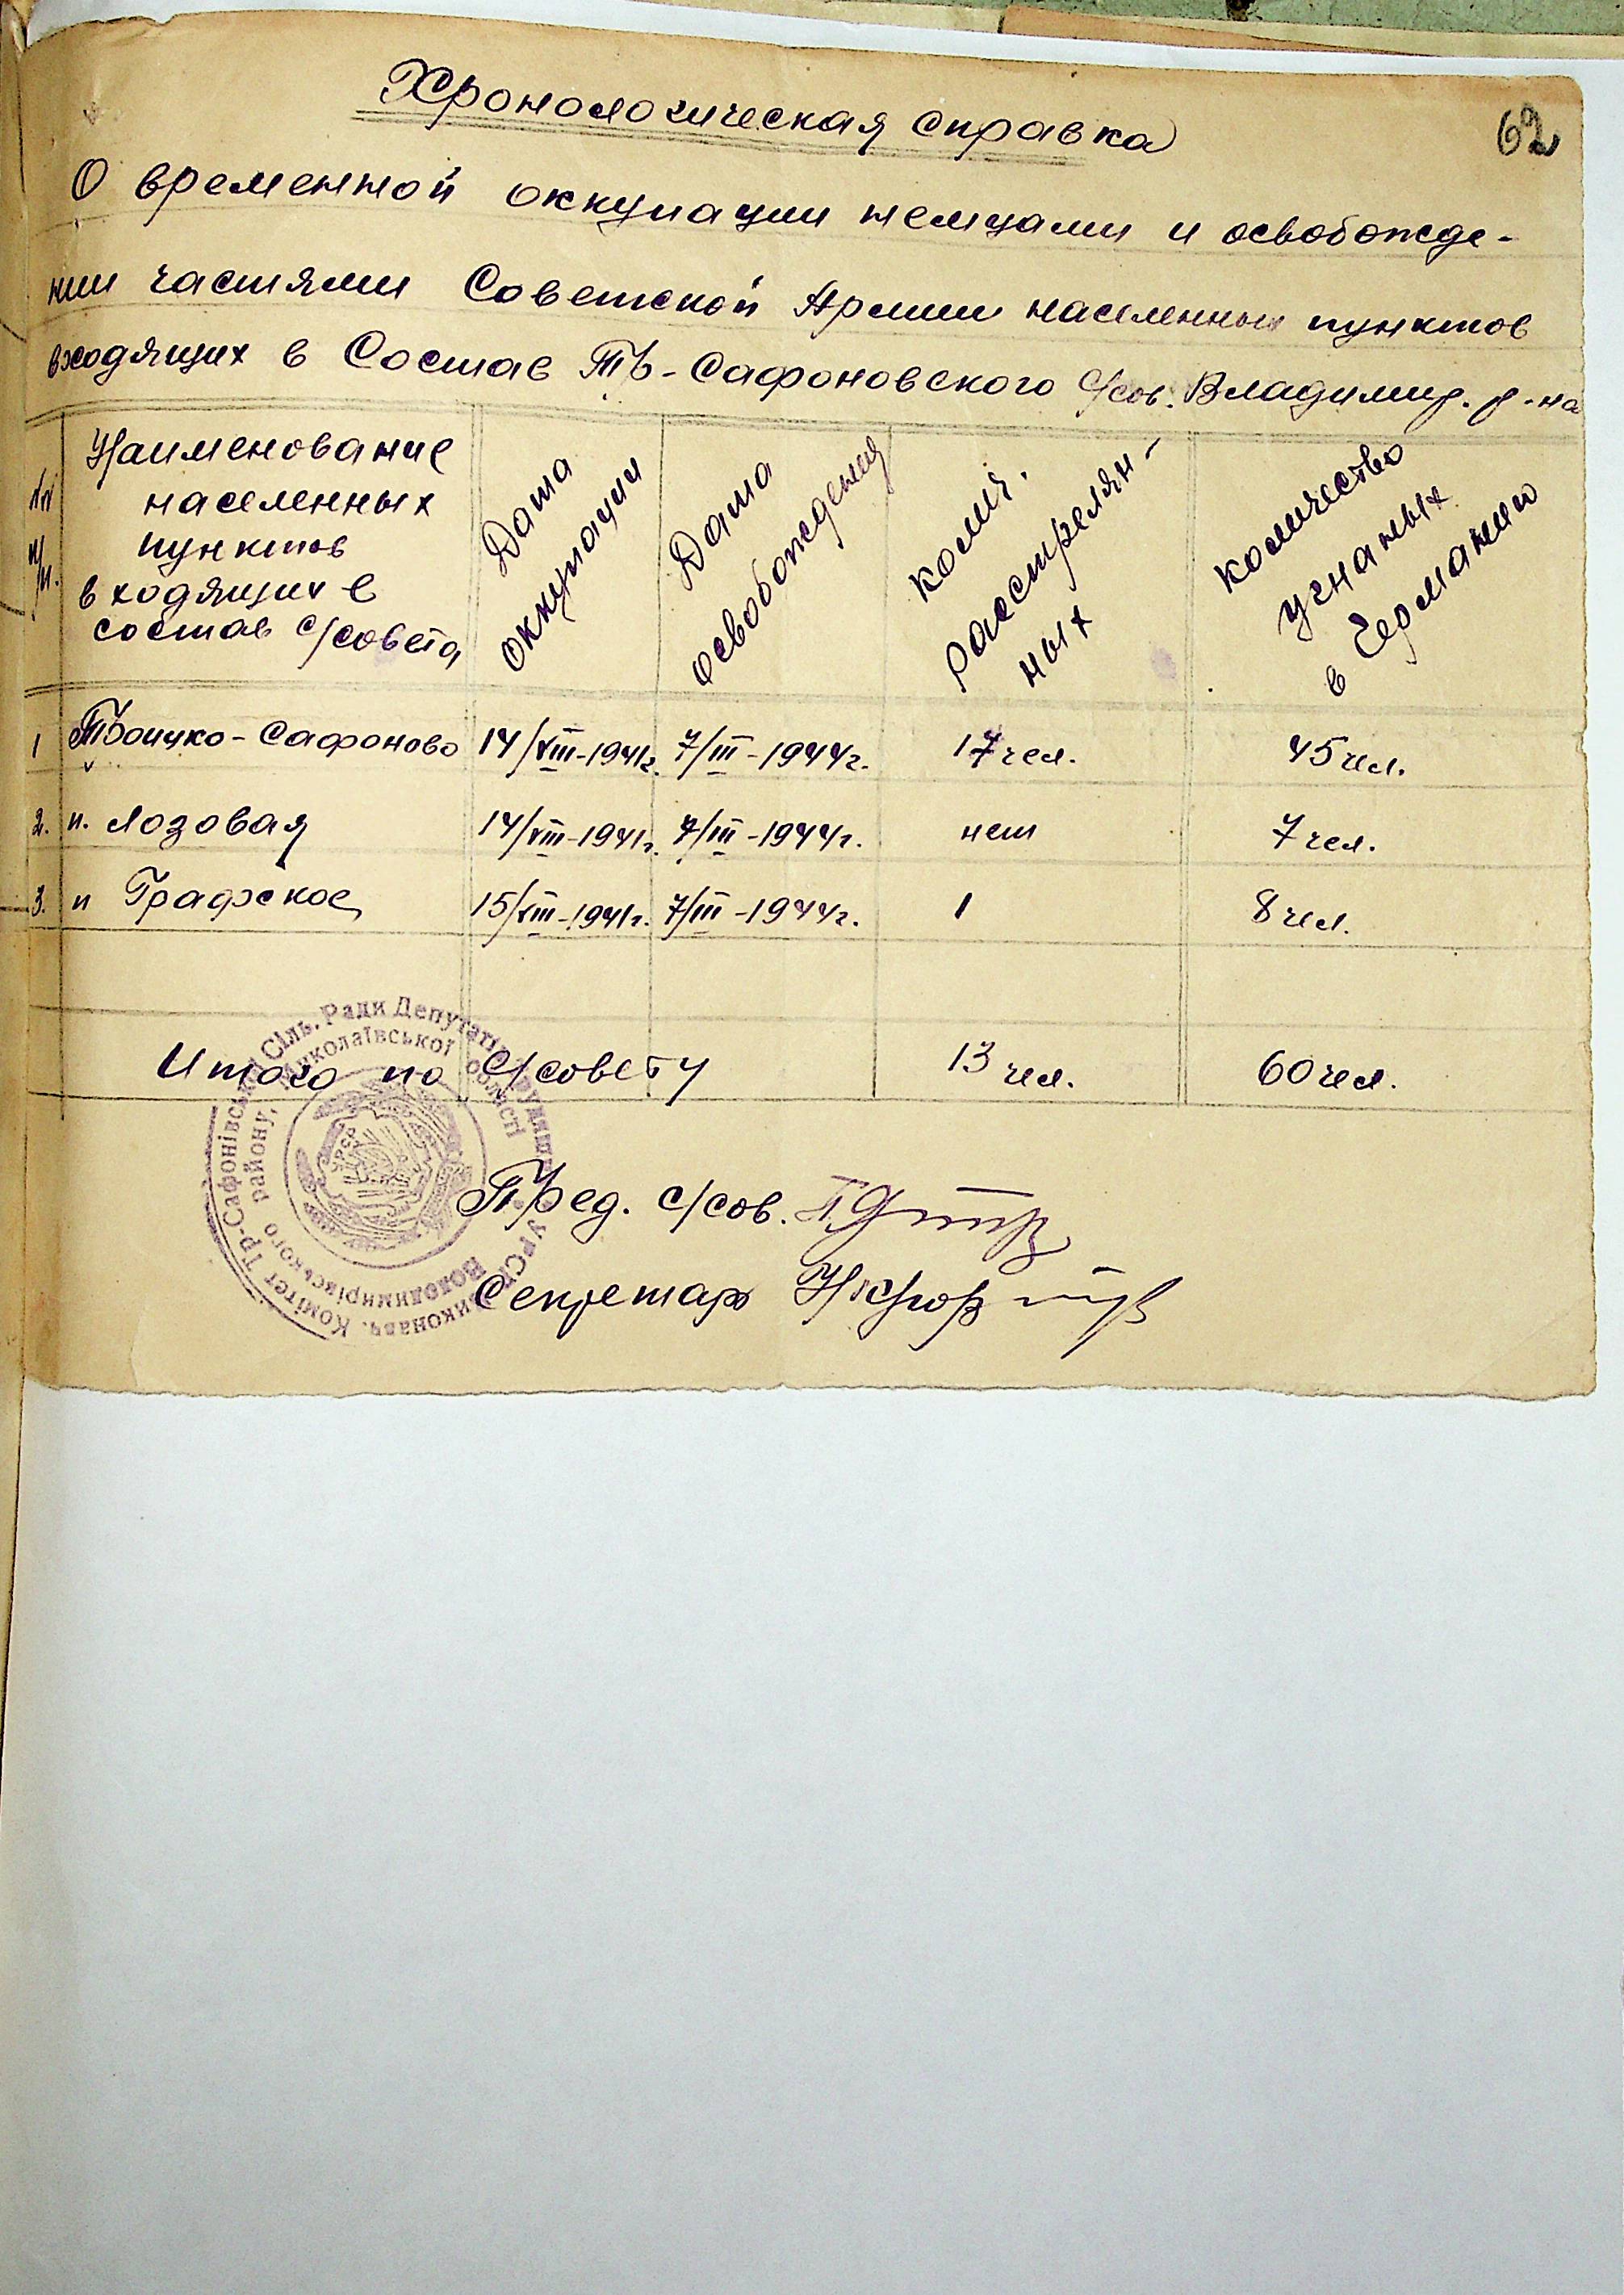 62
Хронологическая справка
О временной оккупации немцами и освобожде-
нии частями Советской Армии населенных пунктов
входящих в Состав Тр-Сафоновского с/сов. Владимир. р-на
№№ п/п.
Наименование
населенных
пунктов
входящих в
состав с/совета
Дата
оккупации
Дата
освобождения
колич.
расстрелян-
ных
количество
угнаных
в Германию
1 Троицко-Сафоново 14/VIII-1941г. 7/III-1944г. 17 чел. 45 чел.
2. п. Лозовая 14/VIII-1941г. 7/III-1944г. нет 7 чел.
3. п Графское 15/VIII-1941г. 7/III-1944г. 1 8 чел.
Итого по с/совету 13 чел. 60 чел.
Пред. с/сов.
Секретарь
Виконавч. Комітет Тр-Сафонівської Сіль. Ради Депутатів Трудящ. УРСР
Володимирівського району, Миколаївської області
УРСР